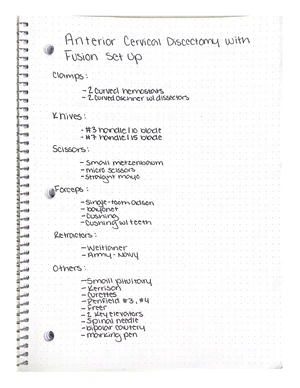 Anterior Cervical Discectomy with
Fusion Set Up
Clamps:
- 2 curved hemostats
- 2 curved oschner w/ dissectors
Knives:
- #3 handle/10 blade
- #7 handle/15 blade
Scissors:
- small metzenbaum
- micro scissors
- straight mayo
Forceps:
- single-tooth adson
- bayonet
- cushing
- cushing w/ teeth
Retractors:
- Weitlaner
- Army-Navy
Others:
- small pituitary
- Kerrison
- curettes
- Penfield #3, #4
- Freer
- 2 key elevators
- Spinal needle
- bipolar cautery
- marking pen